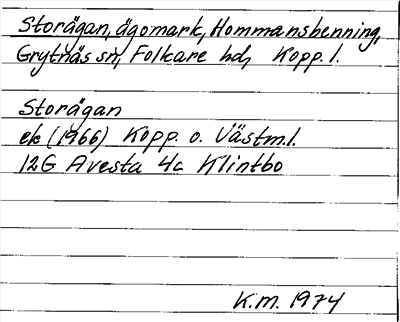 Storågan, ägomark, Hommansbenning,
Grytnäs sn, Folkare hd, Kopp. l.
Storågan
ek (1966) Kopp. o. Västm.l.
12G Avesta 4c Klintbo
K.M. 1974